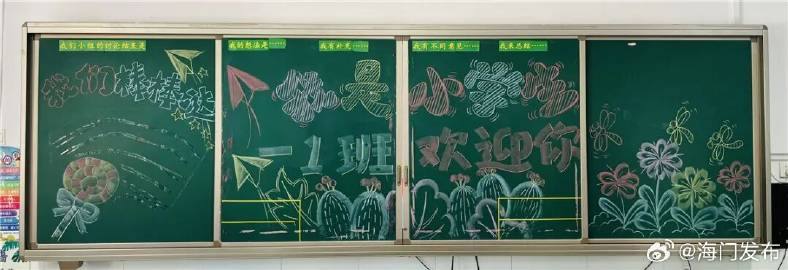 我们小组的讨论结果是
我的想法是……
我有补充……
我有不同意见……
我来总结……
我们棒棒哒
是小学生
一1班 欢迎你
@海门发布